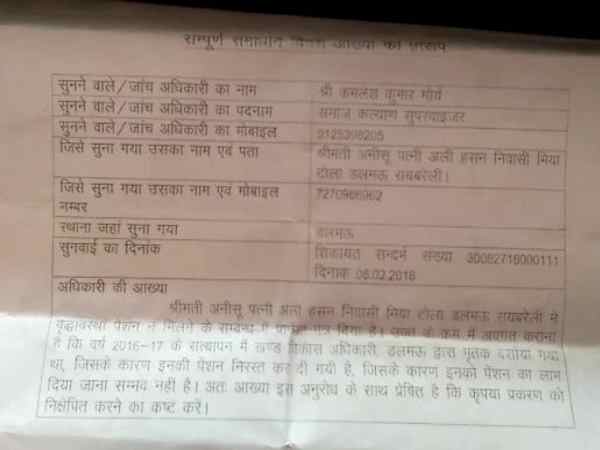 सम्पूर्ण समाधान दिवस आख्या का प्रारूप
सुनने वाले/जांच अधिकारी का नाम श्री कमलेश कुमार मौर्य
सुनने वाले/जांच अधिकारी का पदनाम समाज कल्याण सुपरवाइजर
सुनने वाले/जांच अधिकारी का मोबाइल
जिसे सुना गया उसका नाम एवं पता श्रीमती अनीसू पत्नी अली हसन निवासी मिया
टोला डलमऊ रायबरेली।
जिसे सुना गया उसका नाम एवं मोबाइल
नम्बर
स्थाना जहां सुना गया डालमऊ
सुनवाई का दिनांक शिकायत सन्दर्भ संख्या 30082716000111
दिनांक 06.02.2018
अधिकारी की आख्या
श्रीमती अनीसू पत्नी अली हसन निवासी मिया टोला डलमऊ रायबरेली में
वृद्धावस्था पेंशन न मिलने के सम्बन्ध में पत्र दिया है। के क्रम में अवगत कराना
है कि वर्ष 2016-17 के सत्यापन में खण्ड विकास अधिकारी, डलमऊ द्वारा मृतक दर्शाया गया
था, जिसके कारण इनकी पेंशन निरस्त कर दी गयी है, जिसके कारण इनको पेंशन का लाभ
दिया जाना सम्भव नही है। अतः आख्या इस अनुरोध के साथ प्रेषित है कि कृपया प्रकरण को
निक्षेपित करने का कष्ट करें।